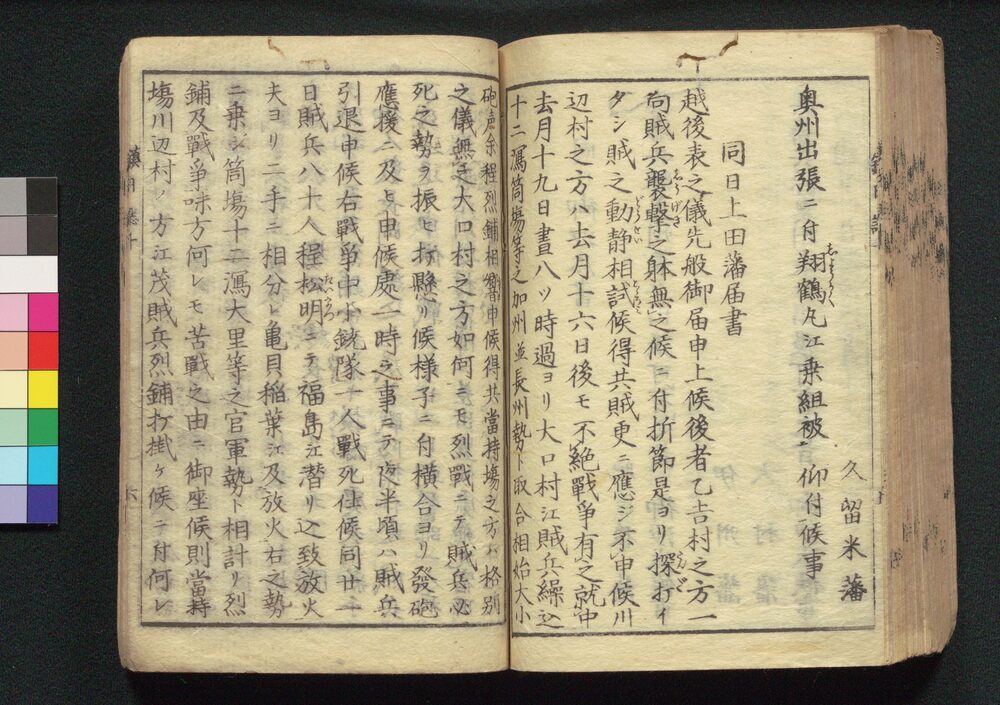 久留米藩
奥州出張ニ付翔鶴丸江乗組被仰付候事
同日上田藩届書
越後表之儀先般御届申上候後者乙吉村之方一
向賊兵襲撃之躰無之候ニ付折節是ヨリ探打イ
タシ賊之動静相試候得共賊更ニ應ジ不申候川
辺村之方ハ去月十六日後モ不絶戦争有之就中
去月十九日晝八ツ時過ヨリ大口村江賊兵繰込
十二潟筒塲等之加州並長州勢ト取合相始大小
砲声余程烈鋪相響申候得共當持塲之方ハ格別
之儀無之大口村之方如何ニモ烈戦ニテ賊兵必
死之勢ヲ振ヒ打懸リ候様子ニ付横合ヨリ發砲
應援ニ及ヒ申候處一時之事ニテ夜半頃ハ賊兵
引退申候右戦争中小銃隊一人戦死仕候同廿一
日賊兵八十人程松明ニテ福島江潜リ込致放火
夫ヨリ二手ニ相分レ亀貝稲葉江及放火右之勢
ニ乗シ筒塲十二潟大里等之官軍勢ト相計リ烈
鋪及戦争味方何レモ苦戦之由ニ御座候則當持
塲川辺村ノ方江茂賊兵烈鋪打掛ケ候ニ付何レ
六